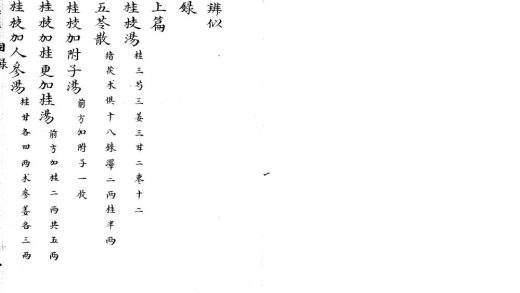 辨似
錄
上篇
桂枝湯 桂三芍三姜三甘二棗十二
五苓散 猪茯术俱十八銖澤二兩桂半兩
桂枝加附子湯 前方加附子一枚
桂枝加桂更加桂湯 前方加桂二兩共五兩
桂枝加人參湯 桂甘各四兩术參姜各三兩
目錄